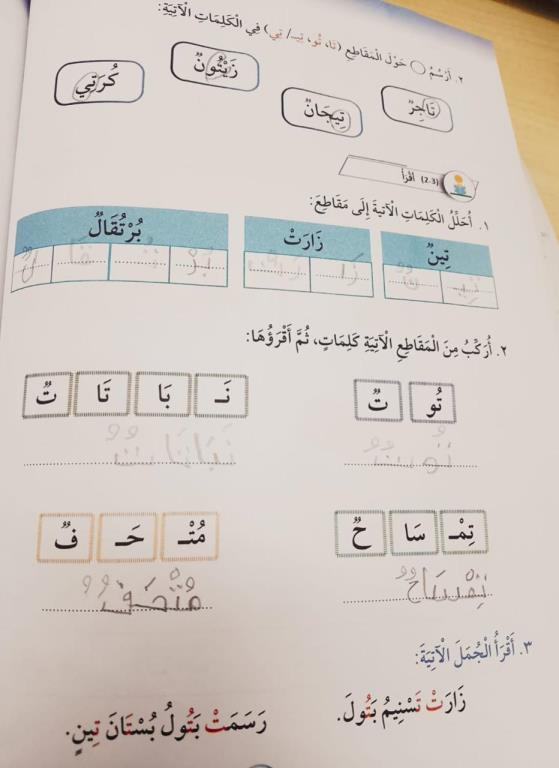 ٢. أَرْسُمُ ◯ حَوْلَ الْمَقَاطِعِ (تَا، تُو، تِيـ/ تِي) فِي الْكَلِمَاتِ الْآتِيَةِ:
تَاجِرٌ تِيجَانٌ زَيْتُونٌ كُرَتِي
(2-3) أَقْرَأُ
١. أُحَلِّلُ الْكَلِمَاتِ الْآتِيَةَ إِلَى مَقَاطِعَ:
تِينٌ زَارَتْ بُرْتُقَالٌ
تِيـ نٌ زَا رَتْ بُرْ تُـ قَا لٌ
٢. أُرَكِّبُ مِنَ الْمَقَاطِعِ الْآتِيَةِ كَلِمَاتٍ، ثُمَّ أَقْرَؤُهَا:
تُو تٌ نَـ بَا تَا تٌ
تُوتٌ نَبَاتَاتٌ
تِمْـ سَا حٌ مُتْـ حَـ فٌ
تِمْسَاحٌ مُتْحَفٌ
٣. أَقْرَأُ الْجُمَلَ الْآتِيَةَ:
زَارَتْ تَسْنِيمُ بَتُولَ. رَسَمَتْ بَتُولُ بُسْتَانَ تِينٍ.